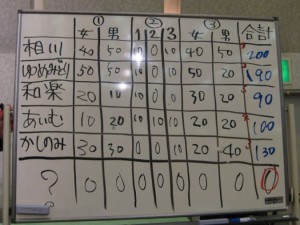 ① ② ③ 合計
女 男 1 2 3 女 男
相川 40 50 10 0 10 40 50 200
50 50 10 0 10 50 20 190
和楽 20 10 10 0 0 30 20 90
あいむ 10 20 10 10 10 20 20 100
かしのみ 30 30 0 0 10 20 40 130
? 0 0 0 0 0 0 0 0